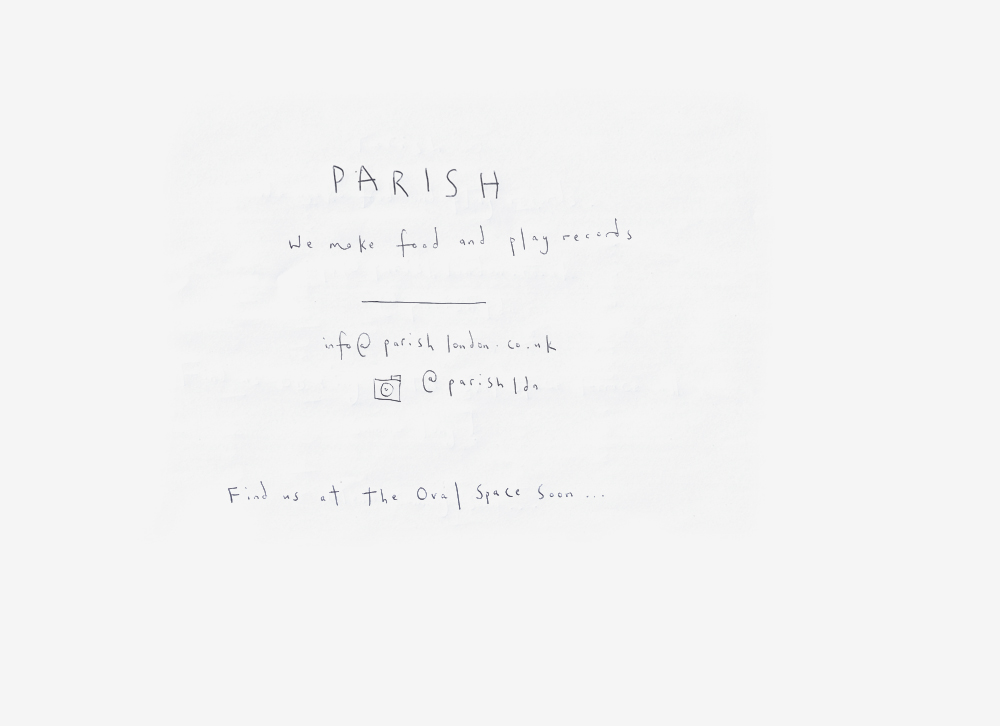 PARISH
We make food and play records
info@parishlondon.co.uk
@parishldn
Find us at the Oval Space soon...